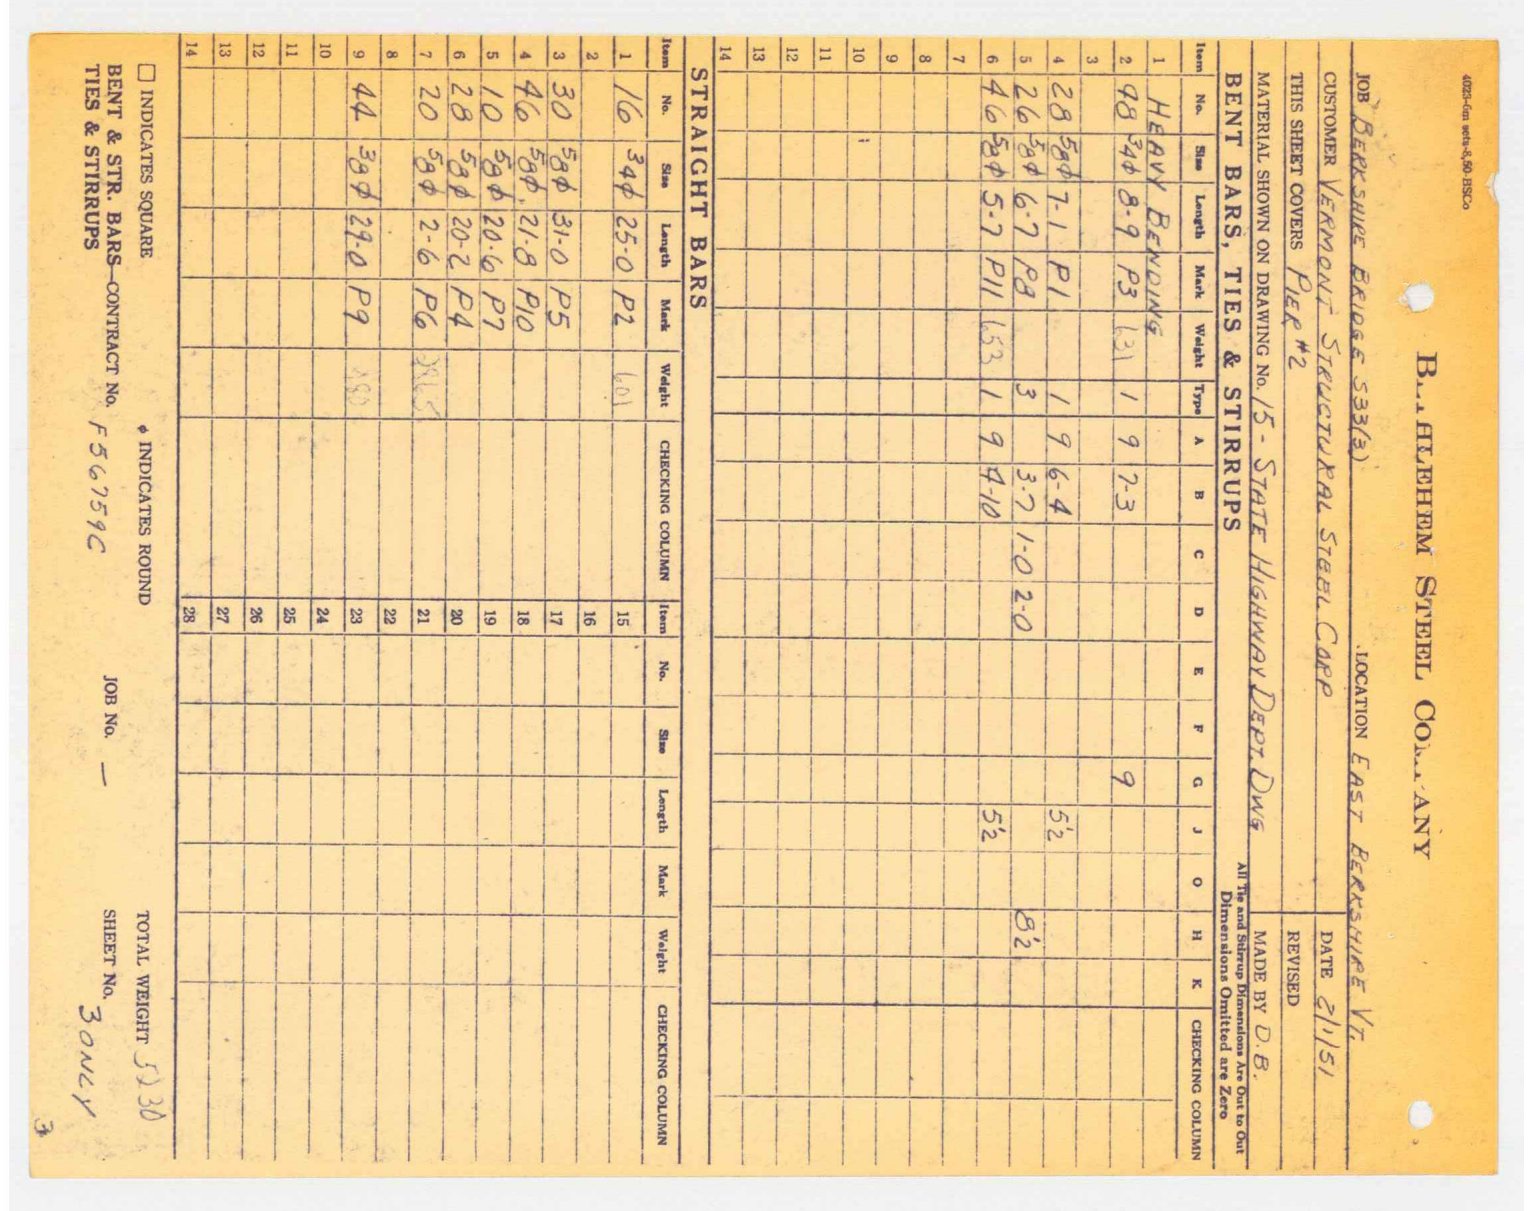 4023-6m sets-8,50-BSCo
BETHLEHEM STEEL COMPANY
JOB BERKSHIRE BRIDGE S33(3) LOCATION EAST BERKSHIRE VT.
CUSTOMER VERMONT STRUCTURAL STEEL CORP DATE 2/1/51
THIS SHEET COVERS PIER #2 REVISED
MATERIAL SHOWN ON DRAWING No. 15 - STATE HIGHWAY DEPT. DWG MADE BY D.B.
BENT BARS, TIES & STIRRUPS All Tie and Stirrup Dimensions Are Out to Out
Dimensions Omitted are Zero
Item No. Size Length Mark Weight Type A B C D E F G J O H K CHECKING COLUMN
1 HEAVY BENDING
2 98 34ϕ 8-9 P3 1 9 7-3 9
3
4 28 58ϕ 7-1 P1 1 9 6-4 5½
5 26 58ϕ 6-7 P8 3 3-7 1-0 2-0 8½
6 46 58ϕ 5-7 P11 653 1 9 4-10 5½
7
8
9
10
11
12
13
14
STRAIGHT BARS
Item No. Size Length Mark Weight CHECKING COLUMN Item No. Size Length Mark Weight CHECKING COLUMN
1 16 34ϕ 25-0 P2 601 15
2 16
3 30 58ϕ 31-0 P5 17
4 46 58ϕ 21-8 P10 18
5 10 58ϕ 20-6 P7 19
6 28 58ϕ 20-2 P4 20
7 20 58ϕ 2-6 P6 21
8 22
9 44 38ϕ 29-0 P9 23
10 24
11 25
12 26
13 27
14 28
☐ INDICATES SQUARE ϕ INDICATES ROUND TOTAL WEIGHT 5230
BENT & STR. BARS—CONTRACT No. F56759C JOB No. — SHEET No. 3 ONLY
TIES & STIRRUPS
3